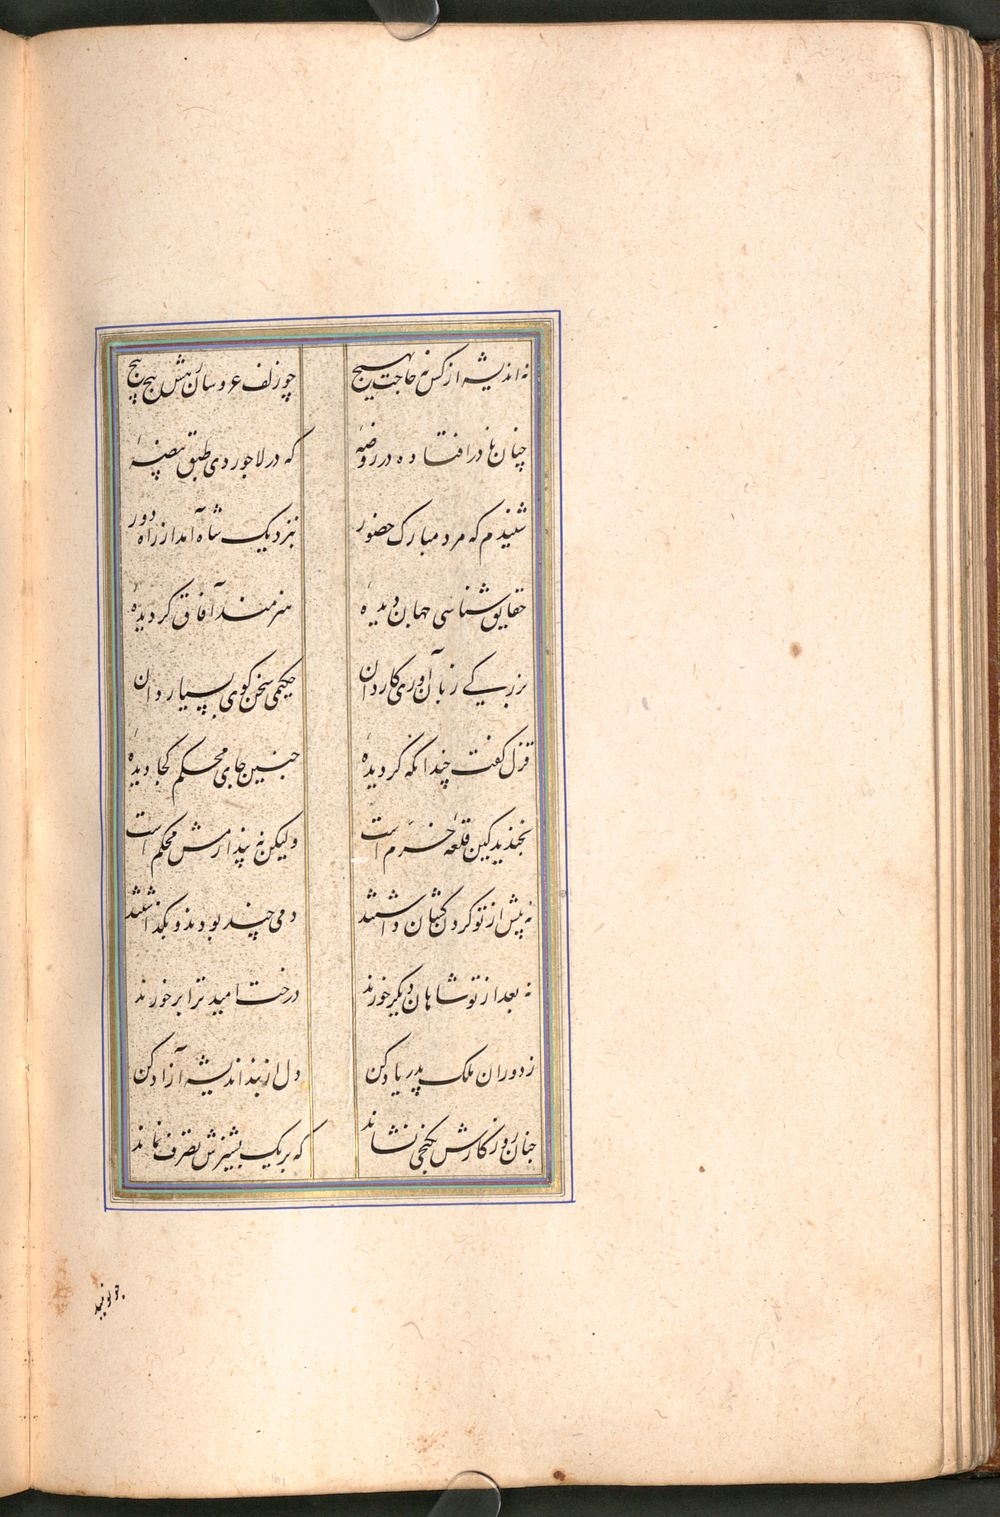 نه اندیشه از کس نه حاجت بهیچ چو زلف عروسان رهش پیچ پیچ
چنان نادر افتاده در روضهٔ که در لاجوردی طبق بیضهٔ
شنیدم که مرد مبارک حضور بنزدیک شاه آمد از راه دور
حقایق شناسی جهان دیدهٔ هنرمند آفاق گردیدهٔ
بزرگی زبان آوری کاردان حکیمی سخن گوی بسیار دان
قزل گفت چندانکه گردیدهٔ چنین جای محکم کجا دیدهٔ
بخندید کین قلعهٔ خرم است ولیکن نه پندارمش محکم است
نه پیش از تو گردن کشان داشتند دمی چند بودند و بگذاشتند
نه بعد از تو شاهان دیگر خورند درخت امید ترا بر خورند
ز دوران ملک پدر یاد کن دل از بند اندیشه آزاد کن
چنان روزگارش بکنجی نشاند که بر یک پشیزش تصرف نماند
چو نومید